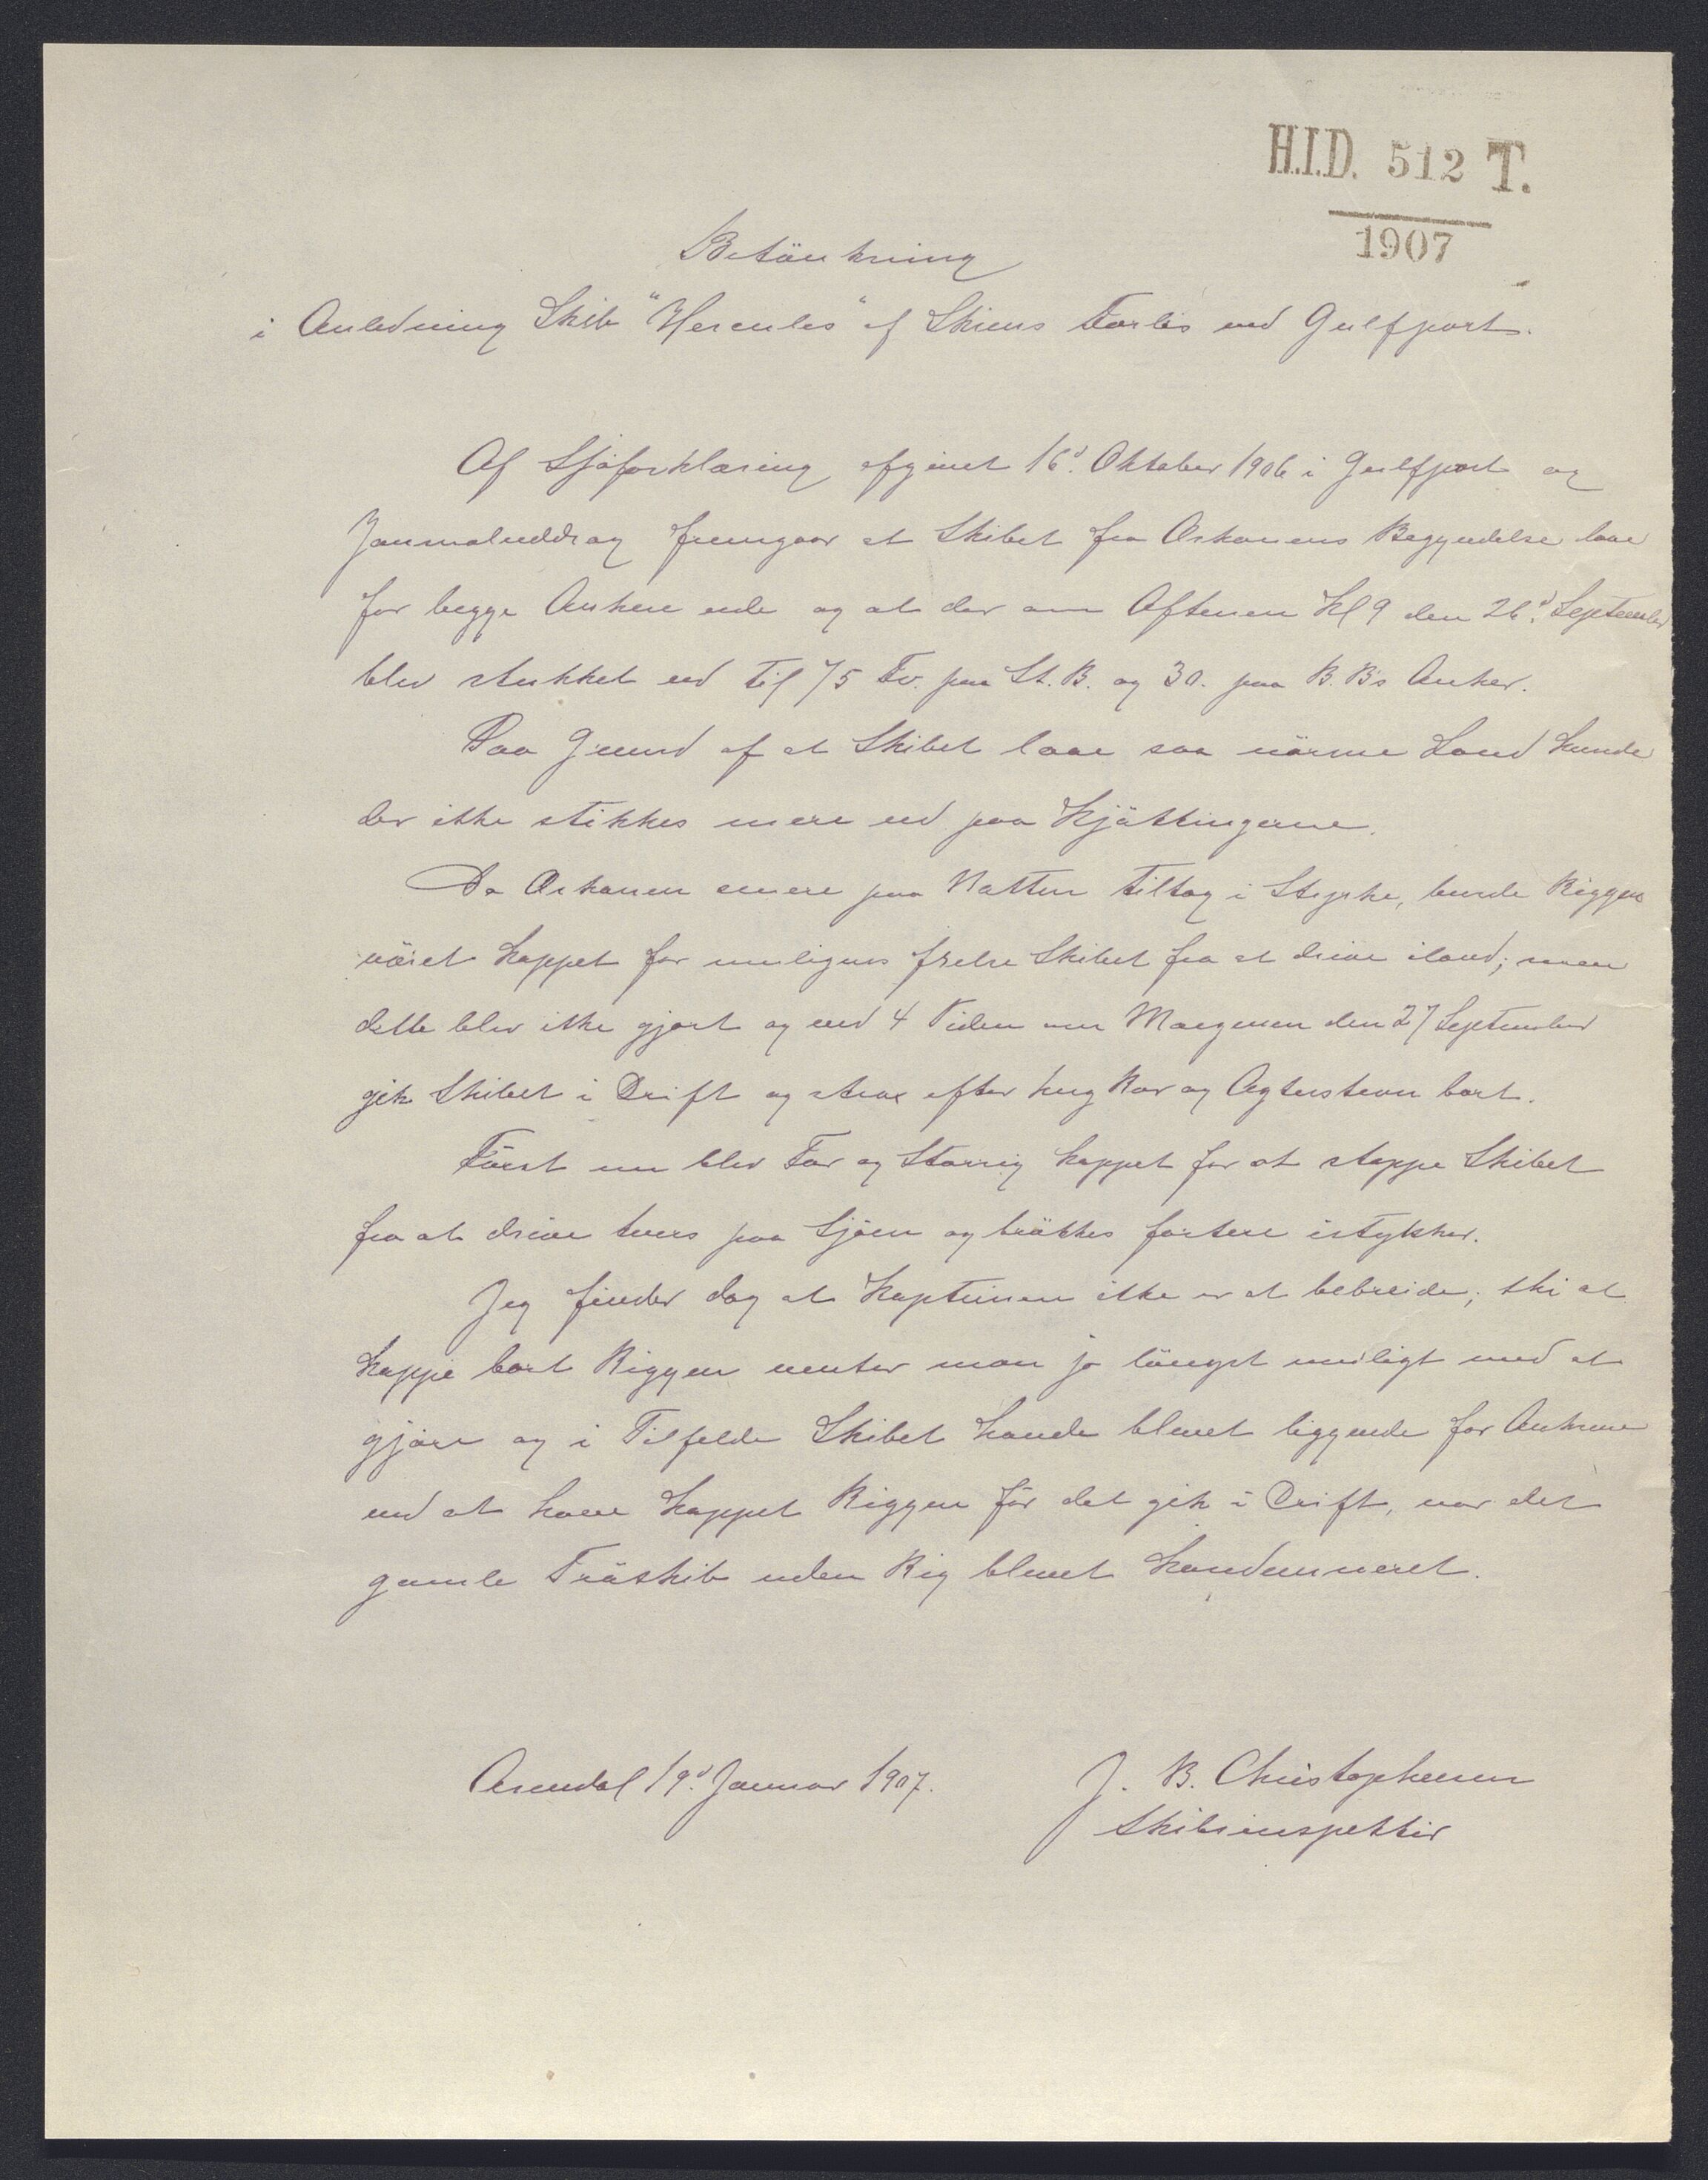 H.I.D. 512 T.
1907
Betänkning
i Anledning Skib "Hercules" af Skiens Forlis ved Gulfport.
Af Sjöforklaring afgivet 16d. Oktober 1906 i Gulfport og
Journaluddrag fremgaar at Skibet fra Orkanens Begyndelse laae
for begge Ankere ude og at der om Aftenen Kl 9 den 26d. September
blev stukket ud til 75 Fv. paa St. B. og 30. paa B. B's Anker.
Paa Grund af at Skibet laae saa närme Land kunde
der ikke stikkes mere ud paa Kjättingerne.
Da Orkanen senere paa Natten tiltog i Styrke, burde Riggen
väret kappet for muligens frelse Skibet fra at drive iland; men
dette blev ikke gjort og ved 4 Tiden om Morgenen den 27 September
gik Skibet i Drift og strax efter hug Ror og Agterstevn bort.
Först nu blev For og Storrig kappet for at stoppe Skibet
fra at drive tvers paa Sjöen og bräkkes fortere istykker.
Jeg finder dog at Kapteinen ikke er at bebreide; thi at
kappe bort Riggen venter man jo längst muligt med at
gjöre og i Tilfelde Skibet havde blevet liggende for Ankrene
ved at have kappet Riggen för det gik i Drift, var det
gamle Träskib uden Rig blevet kondemneret.
Arendal 19d. Januar 1907.
J. B. Christophersen
Skibsinspektör